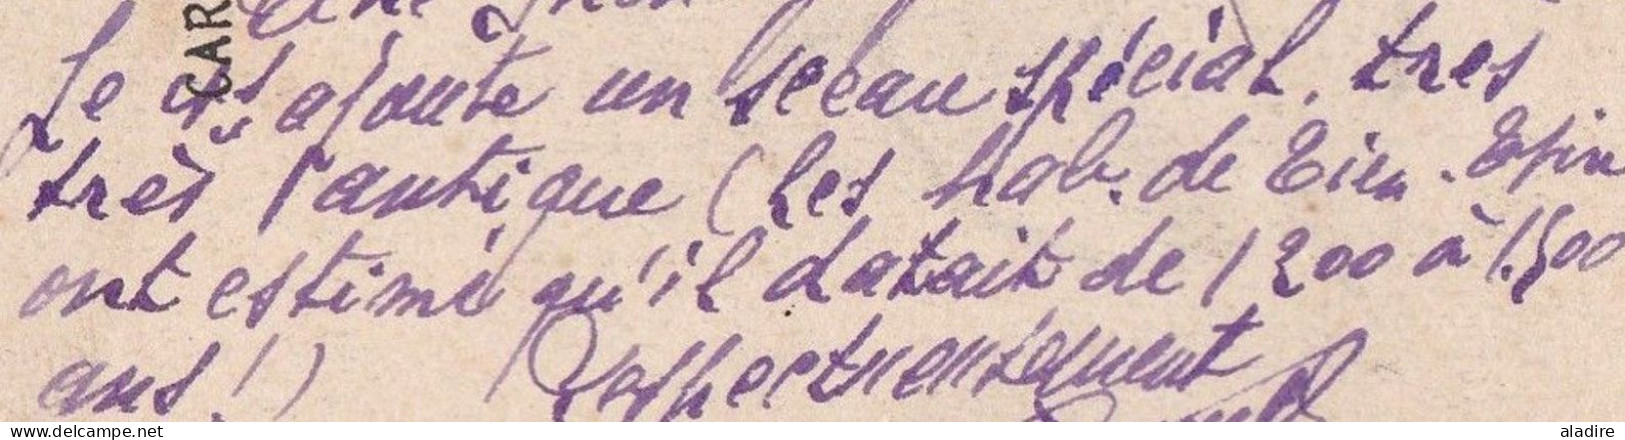 Je ajouté un sceau spécial, tres
très antique (Les hab. de Tien-Tsin
ont estimé qu'il datait de 1200 à 1500
ans!) Respectueusement
CAR
www.delcampe.net
aladire